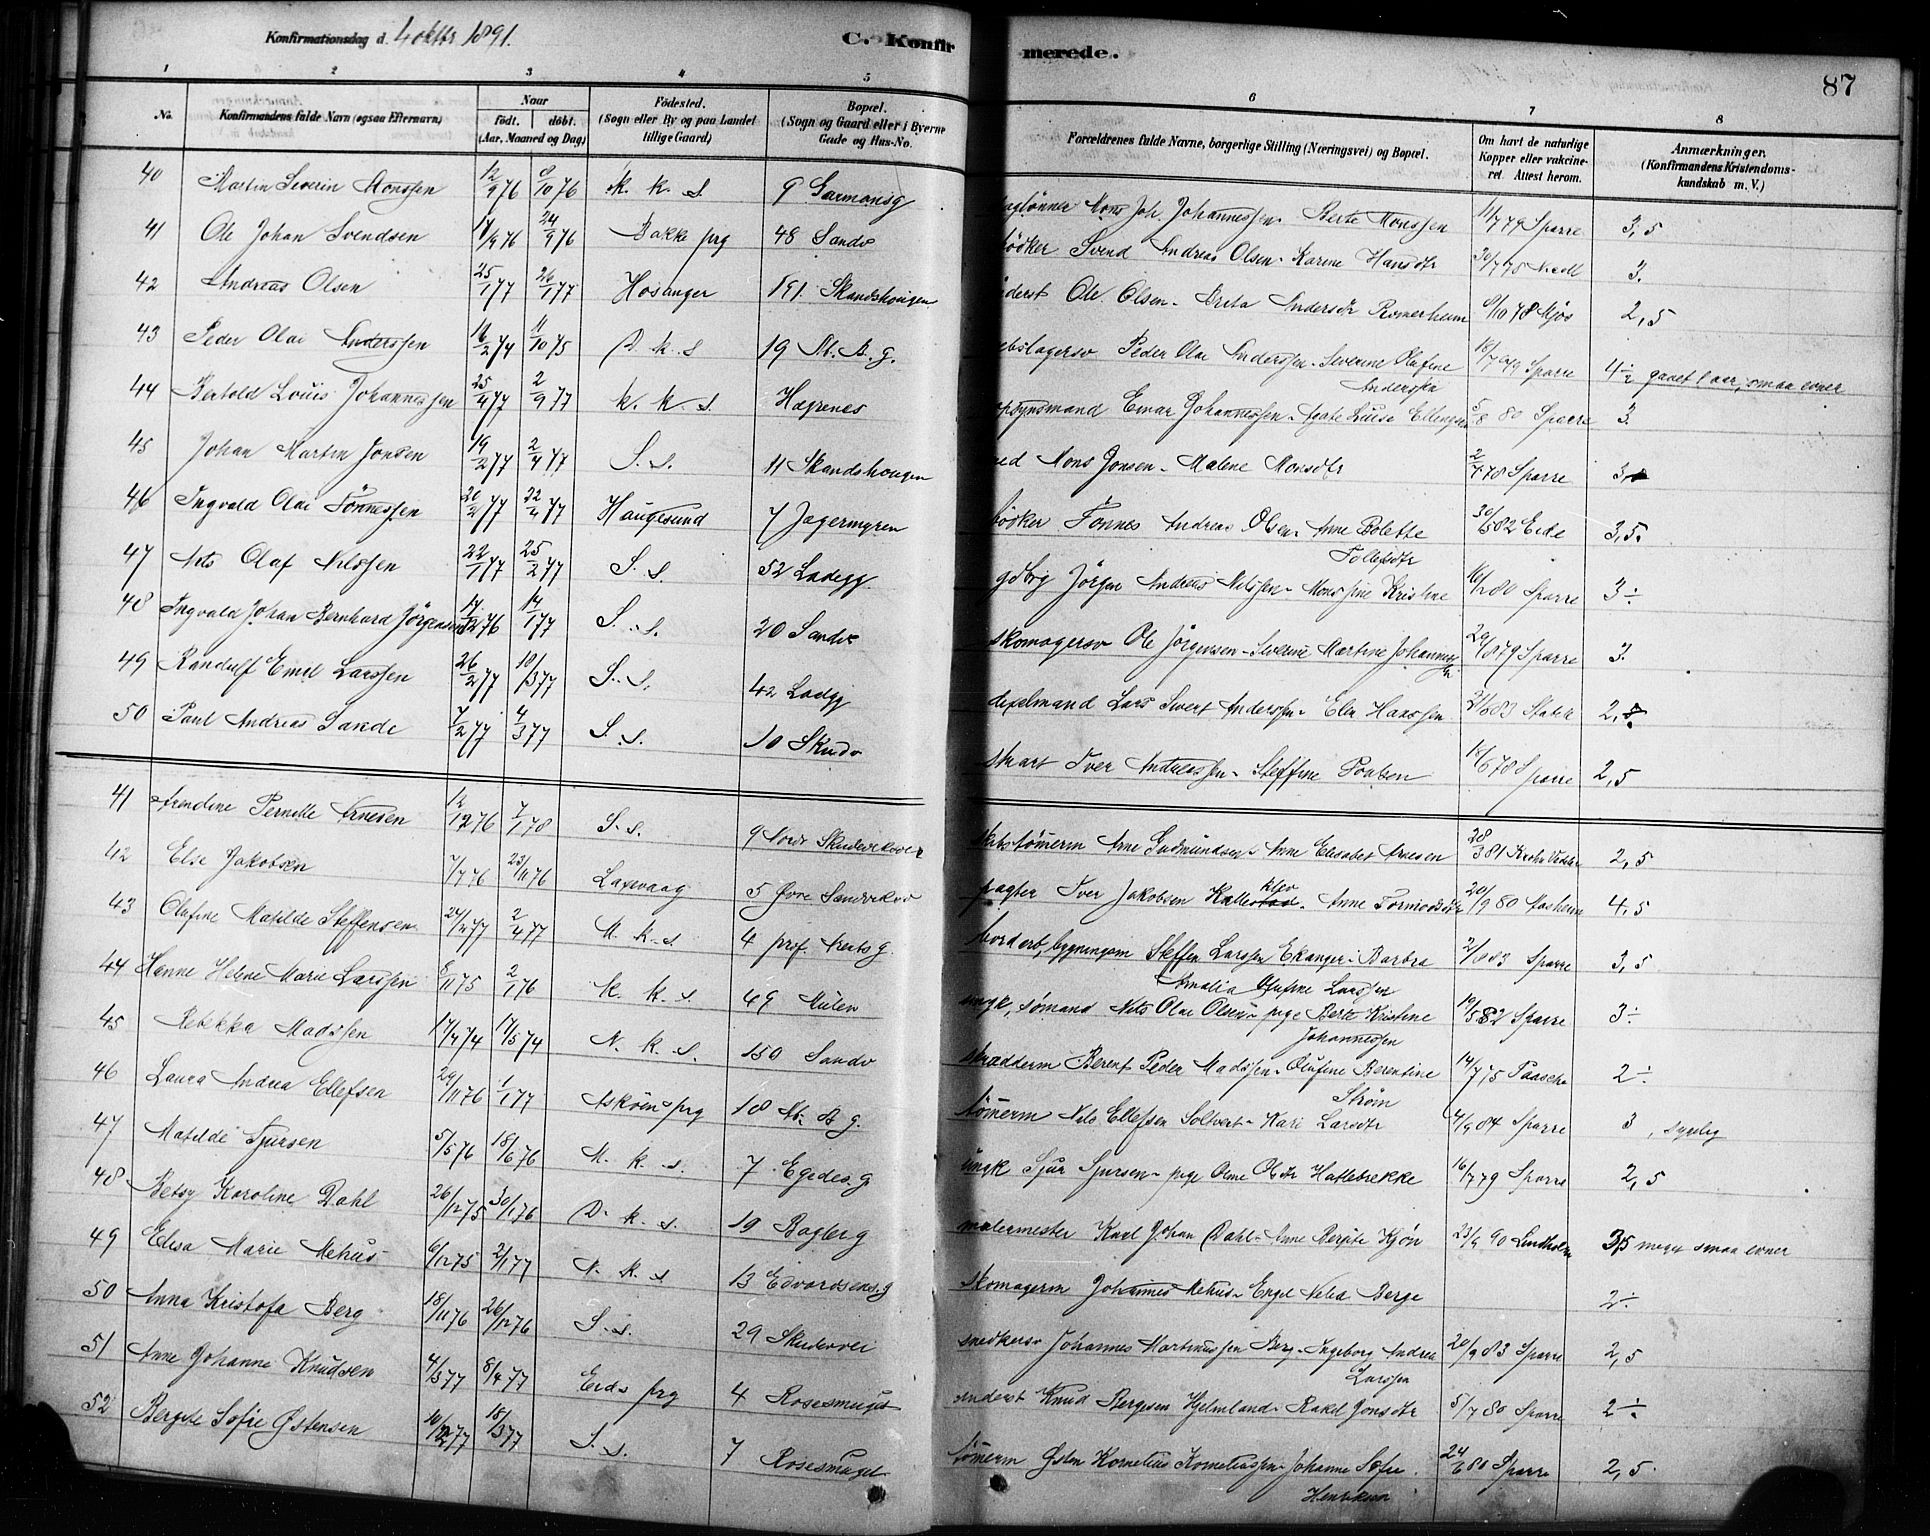 Konfirmationsdag d. 4 oktbr 1891.
C. Konfirmerede.
87
1 2 3 4 5 6 7 8
No. Konfirmandens fulde Navn (ogsaa Efternavn) Naar født. døbt. (Aar, Maaned og Dag) Fødested. (Sogn eller By og paa Landet tillige Gaard) Bopæl. (Sogn og Gaard eller i Byerne Gade og Hus-No. Forældrenes fulde Navne, borgerlige Stilling (Næringsvei) og Bopæl. Om havt de naturlige Kopper eller vakcineret. Attest herom. Anmærkninger. (Konfirmandens Kristendomskundskab m. V.)
40 Martin Severin Monssen 12/9 76 8/10 76 K. k. s 9 Garmansg Mons Joh. Johannessen - Berte Monssen 11/7 79 Sparre 3,5
41 Ole Johan Svendsen 17/9 76 24/9 76 Bakke prg 48 Sandv bødker Svend Andreas Olsen - Karine Hansdtr 3.
42 Andreas Olsen 25/1 77 26/1 77 Hosanger 191 Skandshougen Ole Olsen - Brita Andersdtr Romerheim 9/10 78 Mjøs 2,5
43 Peder Olai Anderssen 14/2 74 11/10 75 D k. s 19 St. A. g. Peder Olai Anderssen - Severine Olafine Anderssen Sparre 4½ gaaet 1 aar, smaa evner
44 Bertold Louis Johannessen 25/4 77 2/9 77 K. k. s. Hægrenes opsynsmand Einar Johannessen - Agate Luise Ellingsen 5/8 80 Sparre 3.
45 Johan Martin Jonsen 19/2 77 2/4 77 S. s. 11 Skandshougen Mons Jonsen - Malene Monsdtr 2/7 78 Sparre 3,
46 Ingvald Olai Tönnessen 20/2 77 22/4 77 Haugesund 7 Jægermyren bödker Tönnes Andreas Olsen - Anne Bolette Tollefsdtr 30/5 82 Eide 3,5.
47 Nils Olaf Nilssen 22/1 77 25/2 77 S. s. 52 Ladegg Jörgen Andreas Nilssen - Monssine Kristine 16/1 80 Sparre 3÷
48 Ingvald Johan Bernhard Jörgensen 17/12 76 14/1 77 S. s. 20 Sandv skomagersv Ole Jörgensen - Severine Martine Johannessen 29/8 79 Sparre 3.
49 Randulf Emil Larssen 26/2 77 18/3 77 S. s. 42 Ladgg Lars Sivert Anderssen - Elen Hanssen 21/6 83 2,
50 Paul Andreas Sande 7/2 77 4/3 77 S. s. 10 Skudv Iver Andreassen - Steffine Poulsen 18/6 78 Sparre 2,5
41 Arendine Pernille Arnesen 12/12 76 7/1 78 S. s. 9 Nordr Skudevikver Arne Gudmundsen - Anne Elisabet Arnesen 28/3 81 2,5
42 Else Jakobsen 7/7 76 23/11 76 Laxevaag 5 Øvre Sandvikvv Iver Jakobsen Kalleklev - Anne Tormodsdtr 20/9 80 Aasheim 4,5
43 Olafine Matilde Steffensen 24/2 77 2/4 77 M. k. s. 4 prof. Arentsg. bordarb, bygningsm Steffen Larssen Ekanger - Barbra Amalia Olufine Larssen 2/8 83 Sparre 3,5
44 Hanne Helene Marie Larssen 8/11 75 2/1 76 K. k. s 49 Mulen ungk, sømand Nils Olai Olsen - pige Berte Kristine Johannessen 19/5 82 Sparre 3÷
45 Rebekka Madssen 17/4 74 17/5 74 N. k. s. 150 Sandv skrædderm Berent Peder Madssen - Olufine Berentine Strøm 14/7 75 Paasche 2÷
46 Laura Andrea Ellefsen 29/11 76 1/1 77 Askøens prg 18 St. A g. tömerm Nils Ellefsen Solvert - Kari Larsdtr 4/9 84 Sparre 3, sygelig
47 Matilde Sjursen 5/5 76 18/6 76 M. k. s. 7 Egedes. g ungk Sjur Sjursen - pige Olsdtr Hatlebrekke 16/7 79 Sparre 2,5
48 Betsy Karoline Dahl 26/12 75 30/1 76 D. k. s. 19 Bagler g malermester Karl Johan Dahl - Anne Bergite Kjøn 23/9 90 Lindholm 3,5 meget smaa evner
49 Elisa Marie Mehus 6/12 75 2/1 77 N. k. s 13 Edvardsens. g skomagerm Johannes Mehus - Engel Berge 2÷
50 Anna Kristofa Berg 18/11 76 26/12 76 S. s. 29 Skudevvei snedkersv Johannes Martinussen Berg - Ingeborg Andrea Larssen 20/9 83 Sparre 2,5
51 Anne Johanne Knudsen 4/3 77 8/4 77 Eids prg 4 Rosesmuget Knud Bergesen Hjelmland - Rakel Jonsdtr 5/7 80 Sparre 2÷
52 Bergete Sofie Østensen 10/2 77 18/3 77 S. s. 7 Rosesmuget tömerm Østen Kornelius Korneliussen - Johanne Sofie Henriksen 24/6 80 Sparre 2,5.